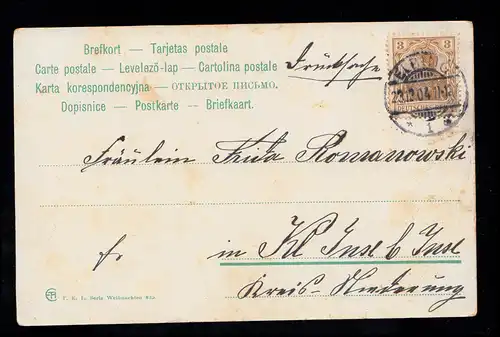 Brefkort — Tarjetas postale
Carte postale — Levelező-lap — Cartolina postale
Karta korespondencyjna — ОТКРЫТОЕ ПИСЬМО.
Dopisnice — Postkarte — Briefkaart.
Drucksache
3 3
23.12.04
1
Fräulein Frida Romanowski
in Kl Inse b Inse
Kreis Niederung
Serie Weihnachten